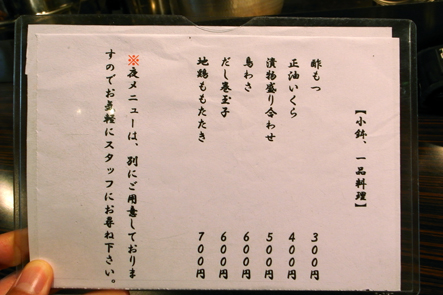 【小鉢、一品料理】
酢もつ 300円
正油いくら 400円
漬物盛り合わせ 500円
鳥わさ 600円
だし巻玉子 600円
地鶏ももたたき 700円
※夜メニューは、別にご用意しておりま
すのでお気軽にスタッフにお尋ね下さい。